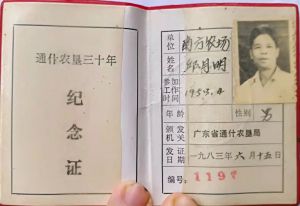 通什农垦三十年
纪念证
单位 南方农场
姓名 邱月明
参加工作时间 1953.4
年龄 性别 男
颁发机关 广东省通什农垦局
发证日期 一九八三年六月十五日
编号: 1197